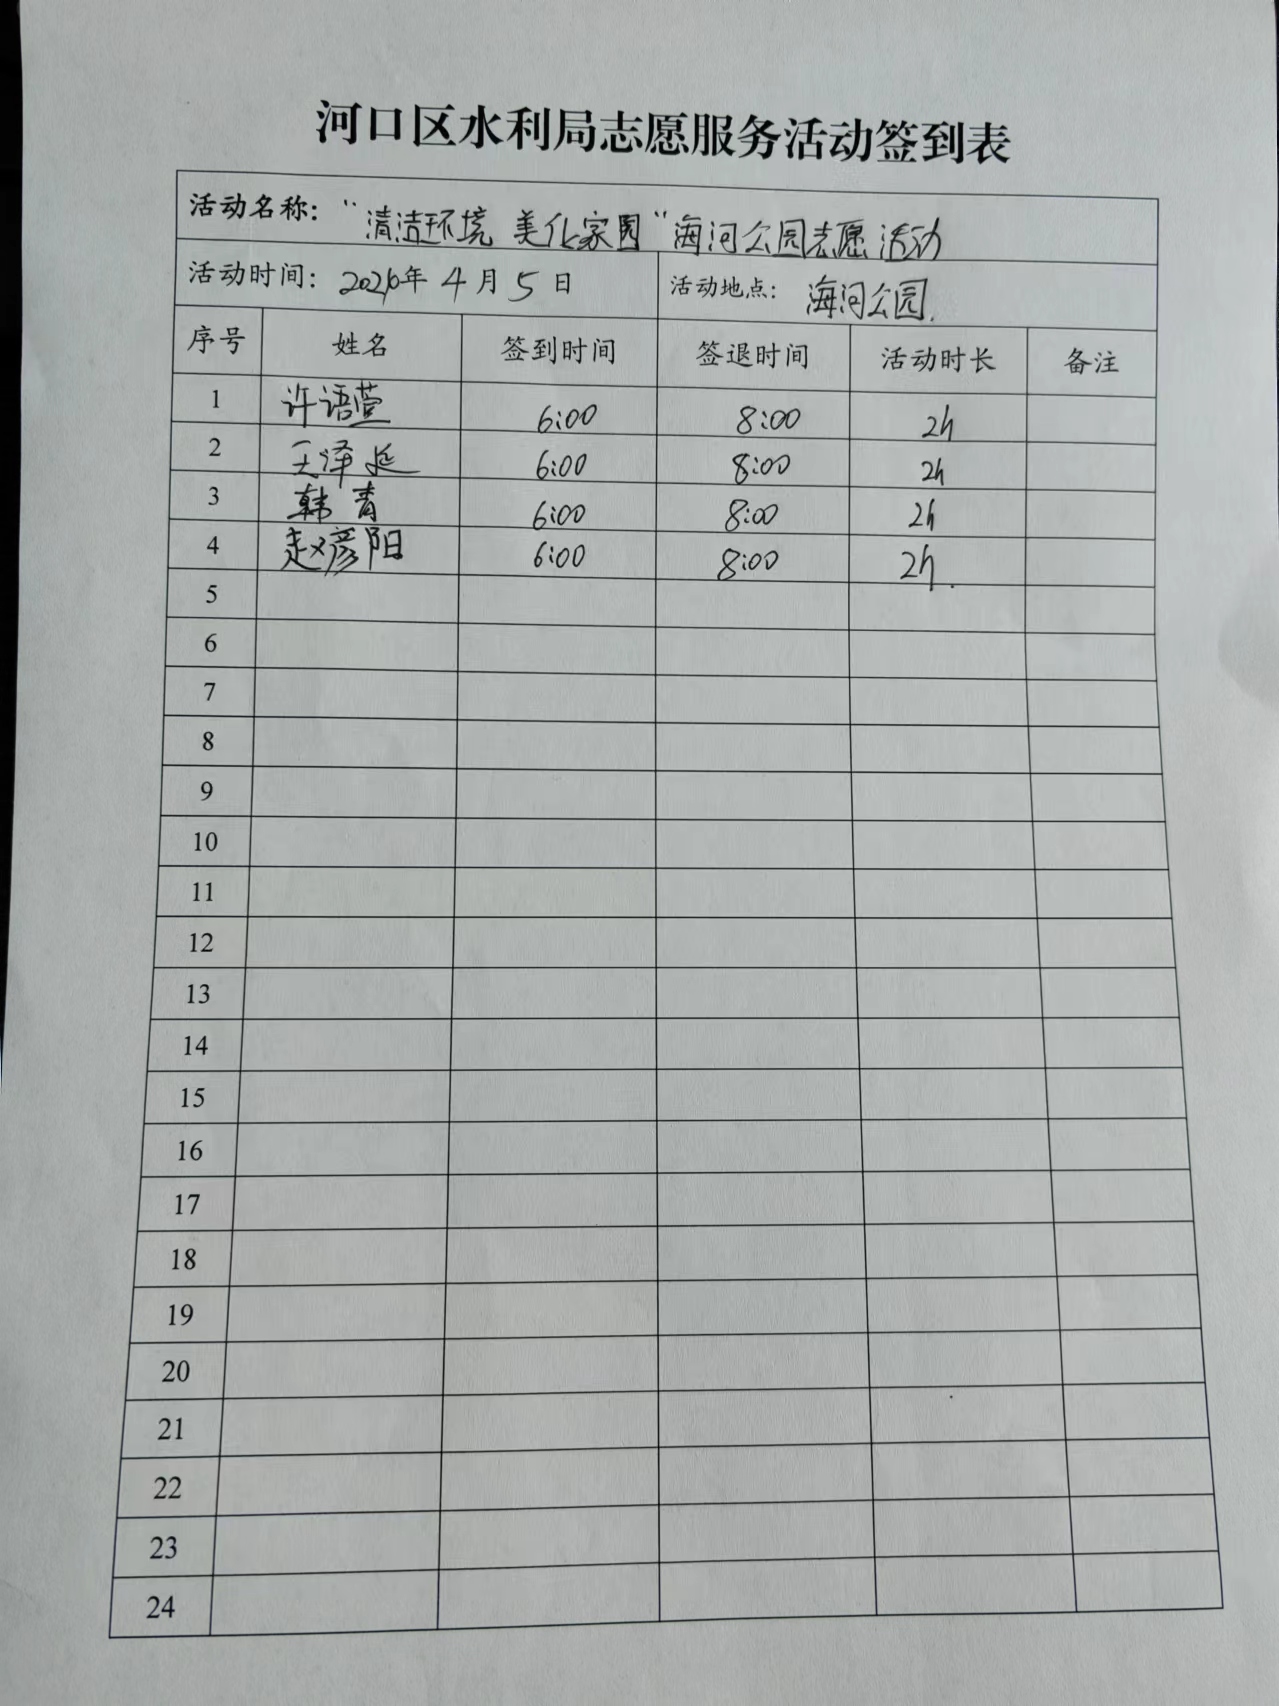 河口区水利局志愿服务活动签到表
活动名称：“清洁环境 美化家园”海河公园志愿活动
活动时间：2026年4月5日 活动地点：海河公园.
序号 姓名 签到时间 签退时间 活动时长 备注
1 许语萱 6:00 8:00 2h
2 王泽延 6:00 8:00 2h
3 韩青 6:00 8:00 2h
4 赵彦阳 6:00 8:00 2h.
5
6
7
8
9
10
11
12
13
14
15
16
17
18
19
20
21
22
23
24